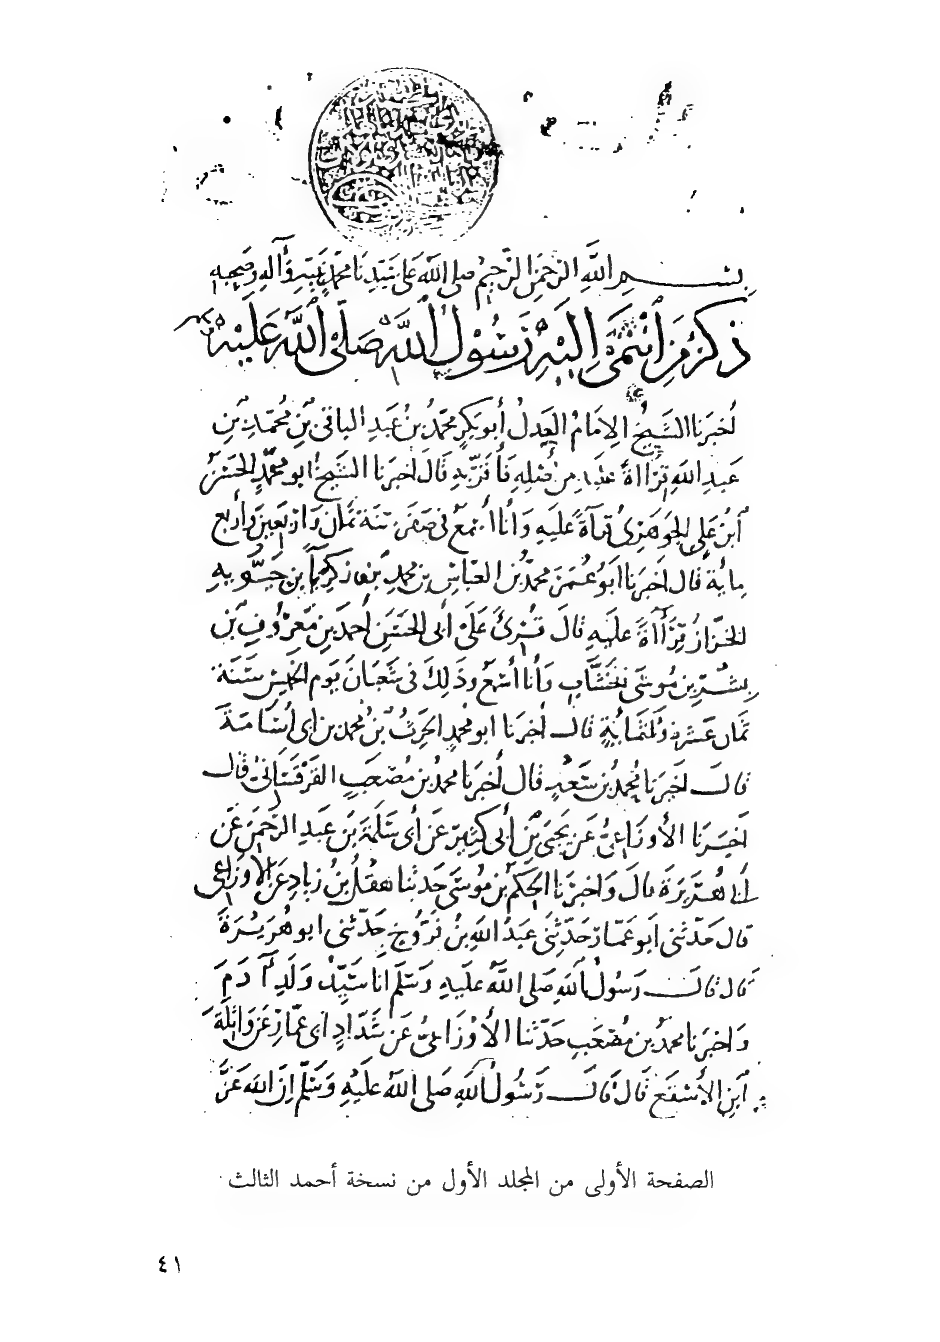 بسم الله الرحمن الرحيم صلى الله على سيدنا محمد نبيه وآله وصحبه
ذكر من انتمى إليه رسول الله صلى الله عليه
أخبرنا الشيخ الإمام العدل أبو بكر محمد بن عبد الباقي بن محمد بن
عبد الله قراءة عليه من أصله فأقر به قال أخبرنا الشيخ أبو محمد الحسن
ابن علي الجوهري قراءة عليه وأنا أسمع في صفر سنة ثمان وأربعين وأربع
ماية قال أخبرنا أبو عمر محمد بن العباس بن محمد بن زكريا بن حيويه
الخزاز قراءة عليه قال قرئ على أبي الحسن أحمد بن معروف بن
بشر بن موسى الخشاب وأنا أسمع وذلك في شعبان يوم الخميس سنة
ثمان عشرة وثلثماية قال أخبرنا أبو محمد الحرث بن محمد بن أبي أسامة
قال أخبرنا محمد بن سعد قال أخبرنا محمد بن مصعب القرقساني قال
أخبرنا الأوزاعي عن يحيى بن أبي كثير عن أبي سلمة بن عبد الرحمن عن
أبي هريرة قال وأخبرنا الحكم بن موسى حدثنا هقل بن زياد عن الأوزاعي
قال حدثني أبو عمار حدثني عبد الله بن فروخ حدثني أبو هريرة
قال قال رسول الله صلى الله عليه وسلم أنا سيد ولد آدم
وأخبرنا محمد بن مصعب حدثنا الأوزاعي عن شداد أبي عمار عن واثلة
ابن الأسقع قال قال رسول الله صلى الله عليه وسلم إن الله عز
الصفحة الأولى من المجلد الأول من نسخة أحمد الثالث
٤١